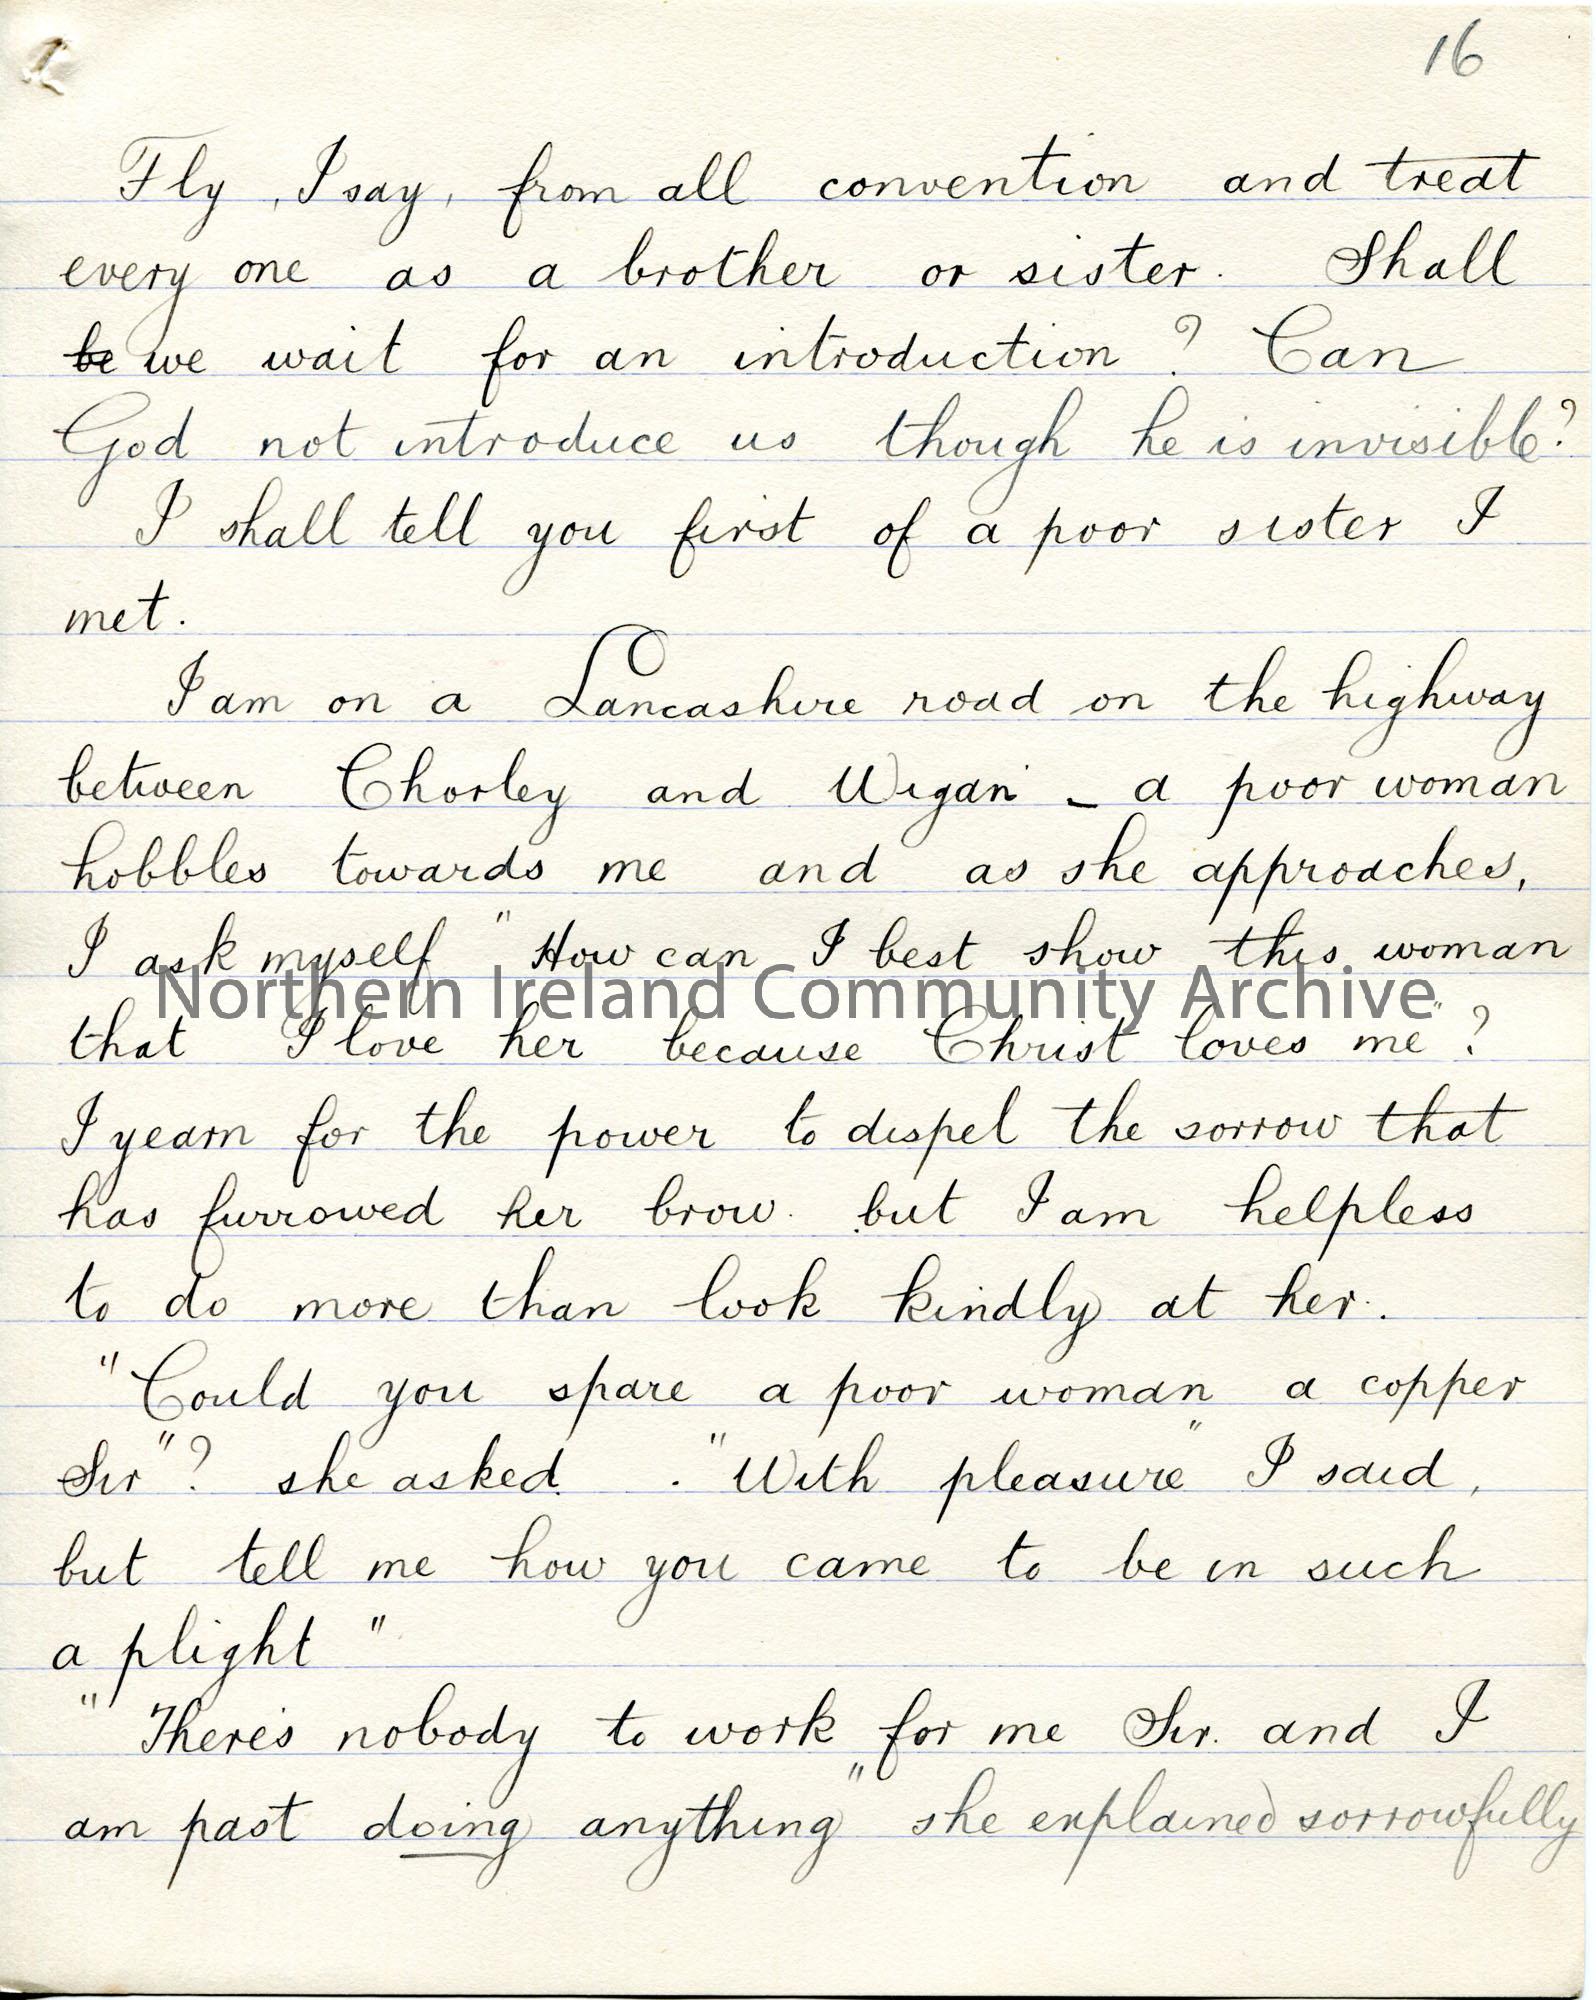 16
Fly, I say, from all convention and treat
every one as a brother or sister. Shall
be we wait for an introduction? Can
God not introduce us though he is invisible?
I shall tell you first of a poor sister I
met.
I am on a Lancashire road on the highway
between Chorley and Wigan - a poor woman
hobbles towards me and as she approaches,
I ask myself "How can I best show this woman
Northern Ireland Community Archive
that I love her because Christ loves me"?
I yearn for the power to dispel the sorrow that
has furrowed her brow. but I am helpless
to do more than look kindly at her.
"Could you spare a poor woman a copper
Sir"? she asked. "With pleasure" I said,
but tell me how you came to be in such
a plight"
"There's nobody to work for me Sir. and I
am past doing anything" she explained sorrowfully